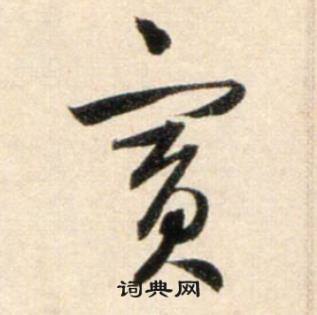 賓
词典网